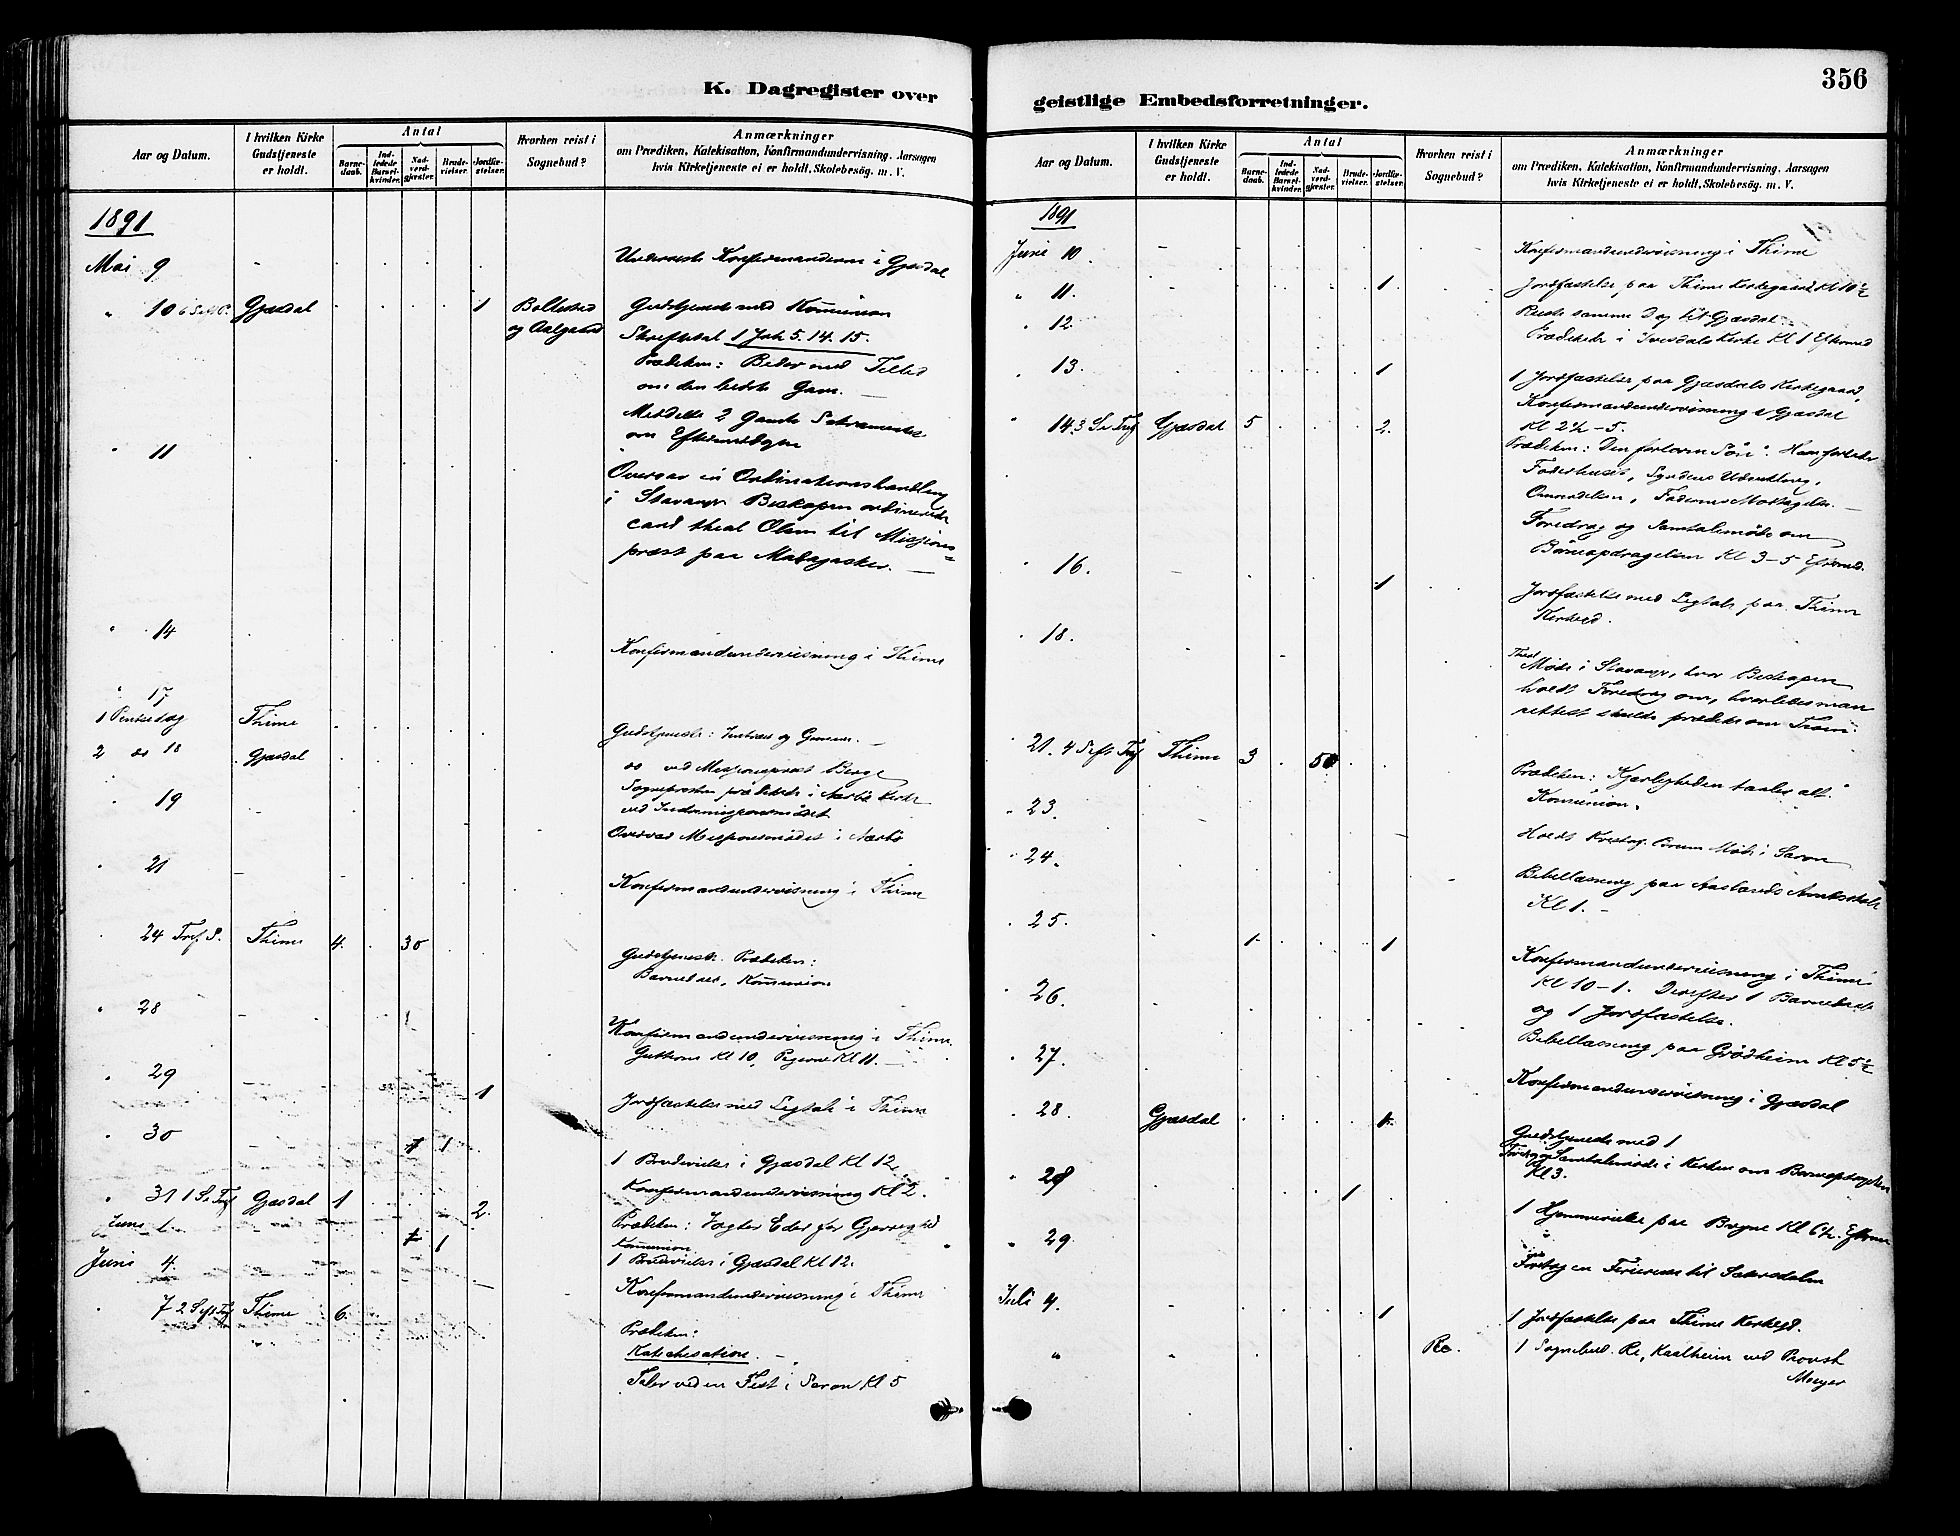 K. Dagregister over
Aar og Datum.
I hvilken Kirke Gudstjeneste er holdt.
Antal
Barnedaab.
Indledede Barselkvinder.
Nadverdgjester.
Brudevielser.
Jordfæstelser.
Hvorhen reist i Sognebud?
Anmærkninger
om Prædiken, Katekisation, Konfirmandundervisning, Aarsagen
hvis Kirketjeneste ei er holdt, Skolebesøg. m. V.
1891
Mai 9 Konfirmanderne i Gjesdal
" 10 Gjesdal 1 Gudstjeneste med Kommunion
og Aalgaard
Skriftetal 1 Joh 5. 14. 15.
Prædiken: Beder med Tillid
om den bedste Gave.
Meddelte 2 Gamle Sakramentet
om Eftermiddagen
" 11 Overvar en Ordinationshandling
i Stavanger Biskopen ordinerede
cand theol Olsen til Missions-
præst paa Madagasker.
" 14 Konfirmandundervisning i Thime
" 17
1 Pintsedag Thime Gudstjeneste:
2 do 18 Gjesdal do ved Missionsprest Berge
" 19 Sognepresten prædikede i Nærbø Kirke
ved Indremissionsmødet
Overvar Missionsmødet i Nærbø
" 21 Konfirmandundervisning i Thime
" 24 Tref. S. Thime 4. 30 Gudstjeneste. Prædiken:
Barnedaab, Kommunion
" 28 Konfirmandundervisning i Thime.
Gutterne Kl 10, Pigerne Kl 11.
" 29 1 Jordfæstelse med Ligtale i Thime
" 30 1 1 Brudevielse i Gjesdal Kl 12.
Konfirmandundervisning Kl 2.
" 31 1 S. Tref Gjesdal 1 2 Prædiken: Vogter Eder for Gjerrighed
Kommunion
Juni 1. 1 1 Brudevielse i Gjesdal Kl 12.
Juni 4. Konfirmandundervisning i Thime
" 7 2 S eft Tref Thime 6. Prædiken:
Katechisation.
Taler ved en Fest i Saron Kl 5
geistlige Embedsforretninger.
356
Aar og Datum.
I hvilken Kirke Gudstjeneste er holdt.
Antal
Barnedaab.
Indledede Barselkvinder.
Nadverdgjester.
Brudevielser.
Jordfæstelser.
Hvorhen reist i Sognebud?
Anmærkninger
om Prædiken, Katekisation, Konfirmandundervisning, Aarsagen
hvis Kirketjeneste ei er holdt, Skolebesøg. m. V.
1891
Juni 10 Konfirmandundervisning i Thime
" 11. 1 Jordfæstelse paa Thime Kirkegaard Kl 10½
Reiste samme Dag til Gjesdal.
" 12. Prædikede i Kirke Kl 1 Eftermd
" 13. 1 1 Jordfæstelse paa Gjesdals Kirkegaard,
Konfirmandundervisning i Gjesdal
Kl 2½-5.
" 14. 3 S e Tref Gjesdal 5 2. Prædiken: Den fortabte Søn:
Faderhuset, Syndens Udvikling,
Omvendelsen, Faderens Modtagelse.
Foredrag og Samtalemøde om
Børneopdragelsen Kl 3-5 Eftermd.
" 16. 1 Jordfæstelse med Ligtale paa Thime
" 18. Møde i Stavanger, hvor Biskopen
holdt Foredrag om, hvorledes man
rettest skulde prædike om Troen.
" 21. 4 S eft Tref Thime 3 50 Prædiken: Kjærligheden taaler alt.
Kommunion.
" 23. Holdt Møde i Saron
" 24. Bibellæsning paa
Kl 1.
" 25. 1 1 Konfirmandundervisning i Thime
Kl 10-1. Derefter 1 Barnedaab
og 1 Jordfæstelse.
" 26. Bibellæsning paa Grødheim Kl 5½
" 27. Konfirmandundervisning i Gjesdal
" 28. Gjesdal 1. Gudstjeneste med 1
Samtalemøde i Kirken om Barneopdragelsen
Kl 3.
" 28 1 1 Hjemmevielse paa Bryne Kl 6½ Efterm
" 29. Foretog en Feriereise til Sætersdalen
Juli 4. 1 1 Jordfæstelse paa Thime Kirkegd.
" " Re. 1 Sognebud. Re, Kaalheim ved Provst
Meyer